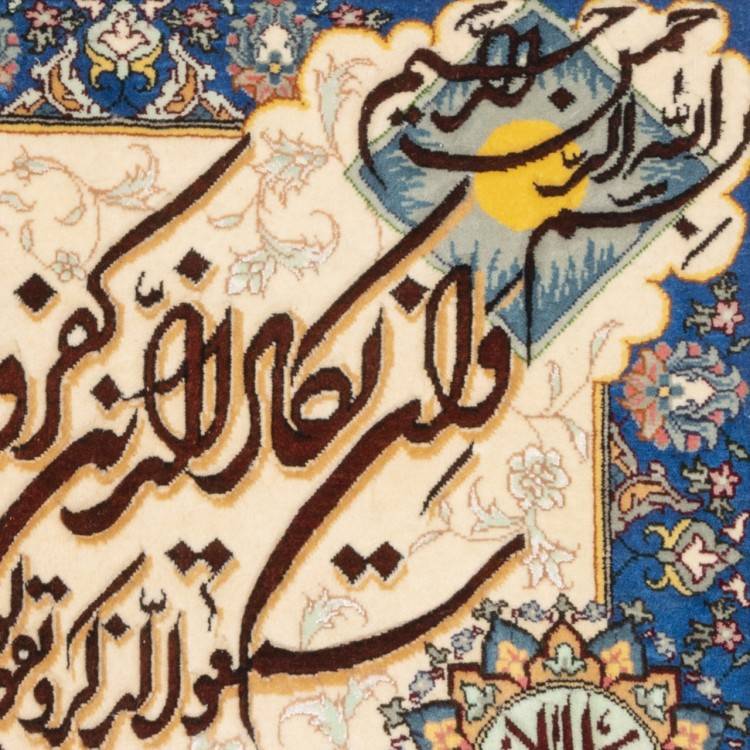 بسم الله الرحمن الرحیم
وان یکاد الذین کفرو
سمعوا الذکر و یقو